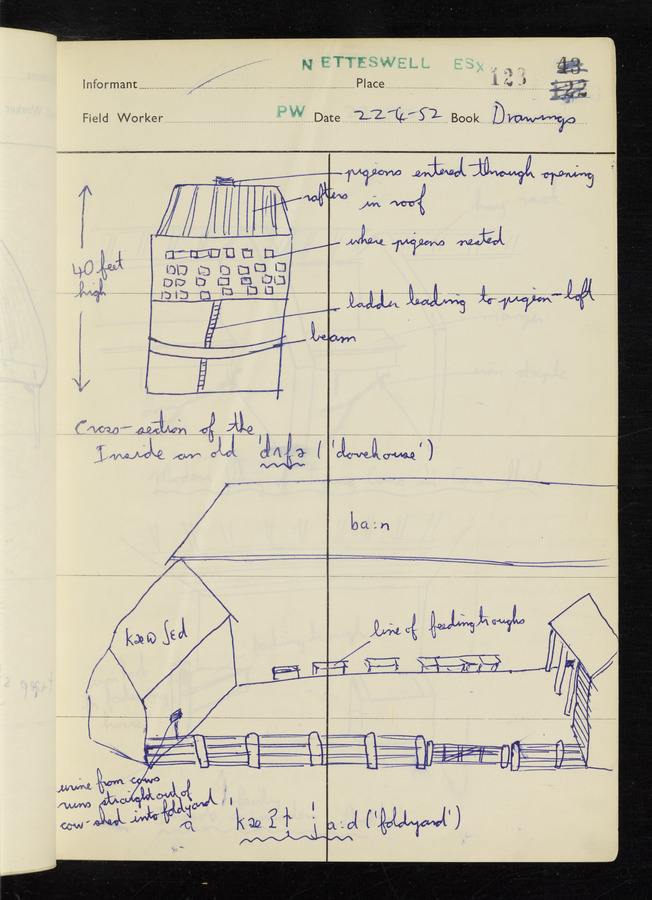 NETTESWELL ESX 123 43
122
Informant Place
Field Worker PW Date 22-4-52 Book Drawings
pigeons entered through opening
in roof
rafters
where pigeons nested
40 feet
high
ladder leading to pigeon-loft
beam
Cross-section of the
Inside an old 'dʌfə ('dovehouse')
ba:n
kæω ʃed
line of feeding troughs
urine from cows
runs straight out of
cow-shed into foldyard
a:d ('foldyard')